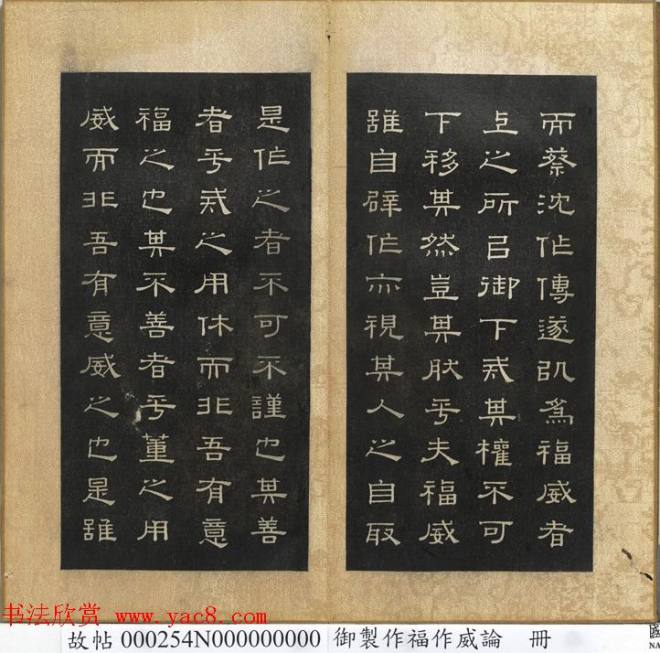 而蔡沈作傳遂以為福威者
上之所㠯御下戒其權不可
下移其然豈其肰乎夫福威
雖自辟作亦視其人之自取
是作之者不可不謹也其善
者乎戒之用休而非吾有意
福之也其不善者乎董之用
威而非吾有意威之也是雖
书法欣赏 www.yac8.com
故帖 000254N000000000 御製作福作威論 冊